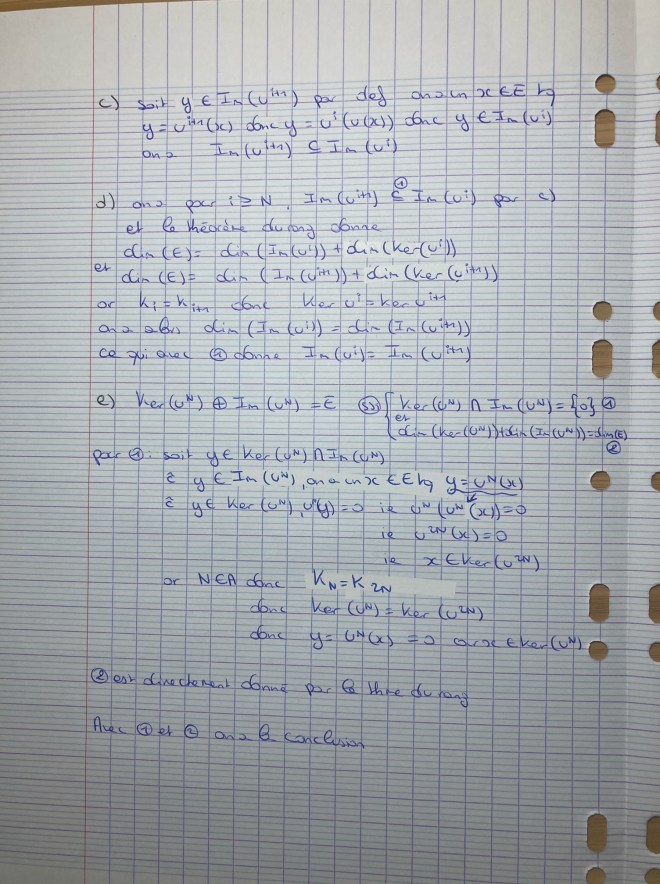 c) soit y ∈ Im(uⁱ⁺¹) par def on a un x ∈ E tq
y = uⁱ⁺¹(x) donc y = uⁱ(u(x)) donc y ∈ Im(uⁱ)
on a Im(uⁱ⁺¹) ⊆ Im(uⁱ)
d) on a pour i ≥ N, Im(uⁱ⁺¹) ⊆① Im(uⁱ) par c)
et le théorème du rang donne
dim(E) = dim(Im(uⁱ)) + dim(Ker(uⁱ))
et dim(E) = dim(Im(uⁱ⁺¹)) + dim(Ker(uⁱ⁺¹))
or kᵢ = kᵢ₊₁ donc Ker uⁱ = Ker uⁱ⁺¹
on a alors dim(Im(uⁱ)) = dim(Im(uⁱ⁺¹))
ce qui avec ① donne Im(uⁱ) = Im(uⁱ⁺¹)
e) Ker(uᴺ) ⊕ Im(uᴺ) = E ssi { Ker(uᴺ) ∩ Im(uᴺ) = {0} ①
et
dim(Ker(uᴺ)) + dim(Im(uᴺ)) = dim(E) ②
pour ① : soit y ∈ Ker(uᴺ) ∩ Im(uᴺ)
y ∈ Im(uᴺ), on a un x ∈ E tq y = uᴺ(x)
y ∈ Ker(uᴺ), uᴺ(y) = 0 ie uᴺ(uᴺ(x)) = 0
ie u²ᴺ(x) = 0
ie x ∈ Ker(u²ᴺ)
or N ∈ A donc K_N = K_2N
donc Ker(uᴺ) = Ker(u²ᴺ)
donc y = uᴺ(x) = 0 car x ∈ Ker(uᴺ)
② est directement donné par le thme du rang
Avec ① et ② on a la conclusion